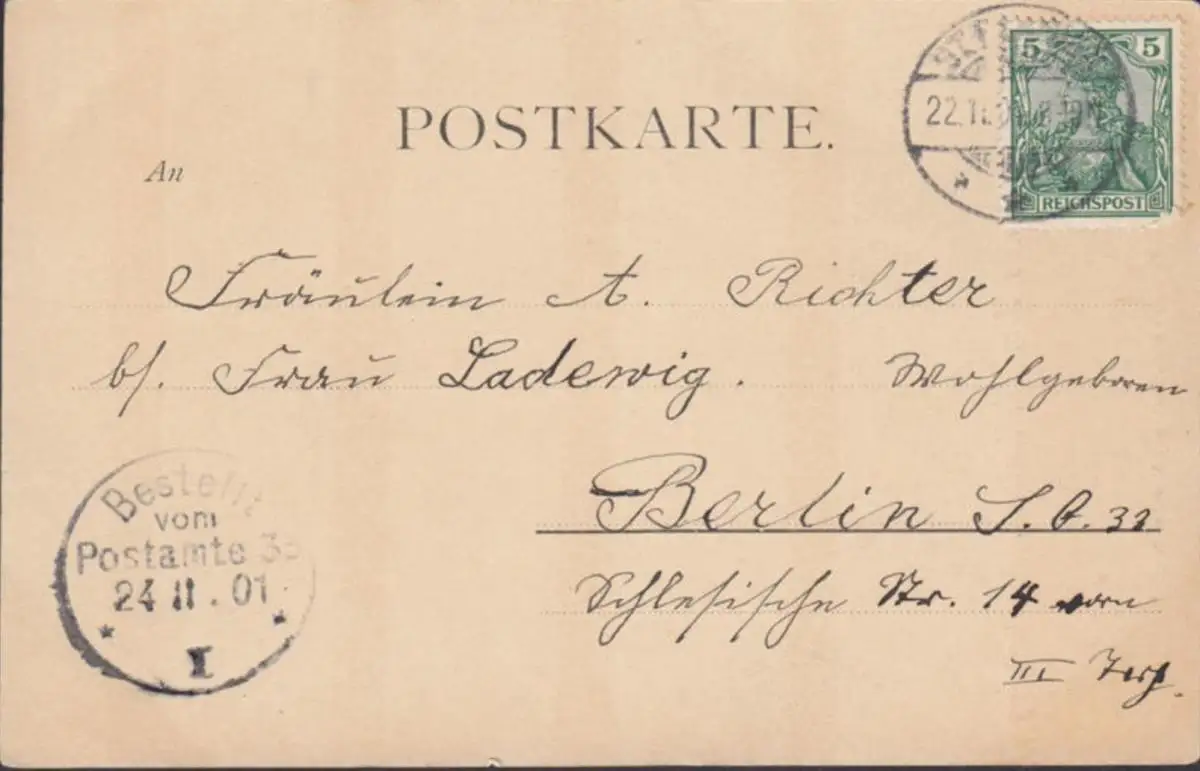 POSTKARTE.
5 5
22.11.
REICHSPOST
An
Fräulein A. Richter
bf. Frau Ladewig. Wohlgeboren
Berlin S.O. 33
Schlesische Str. 14 vorn
III
Bestellt
vom
Postamte 33
24 11.01
I